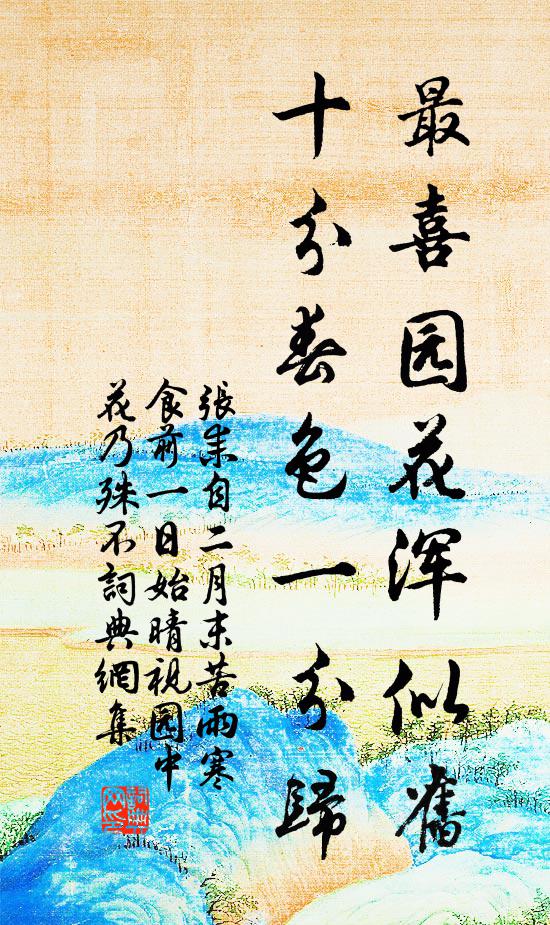 最喜园花浑似舊
十分春色一分歸
張耒自二月末苦雨寒
食前一日始晴視园中
花乃殊不詞典網集